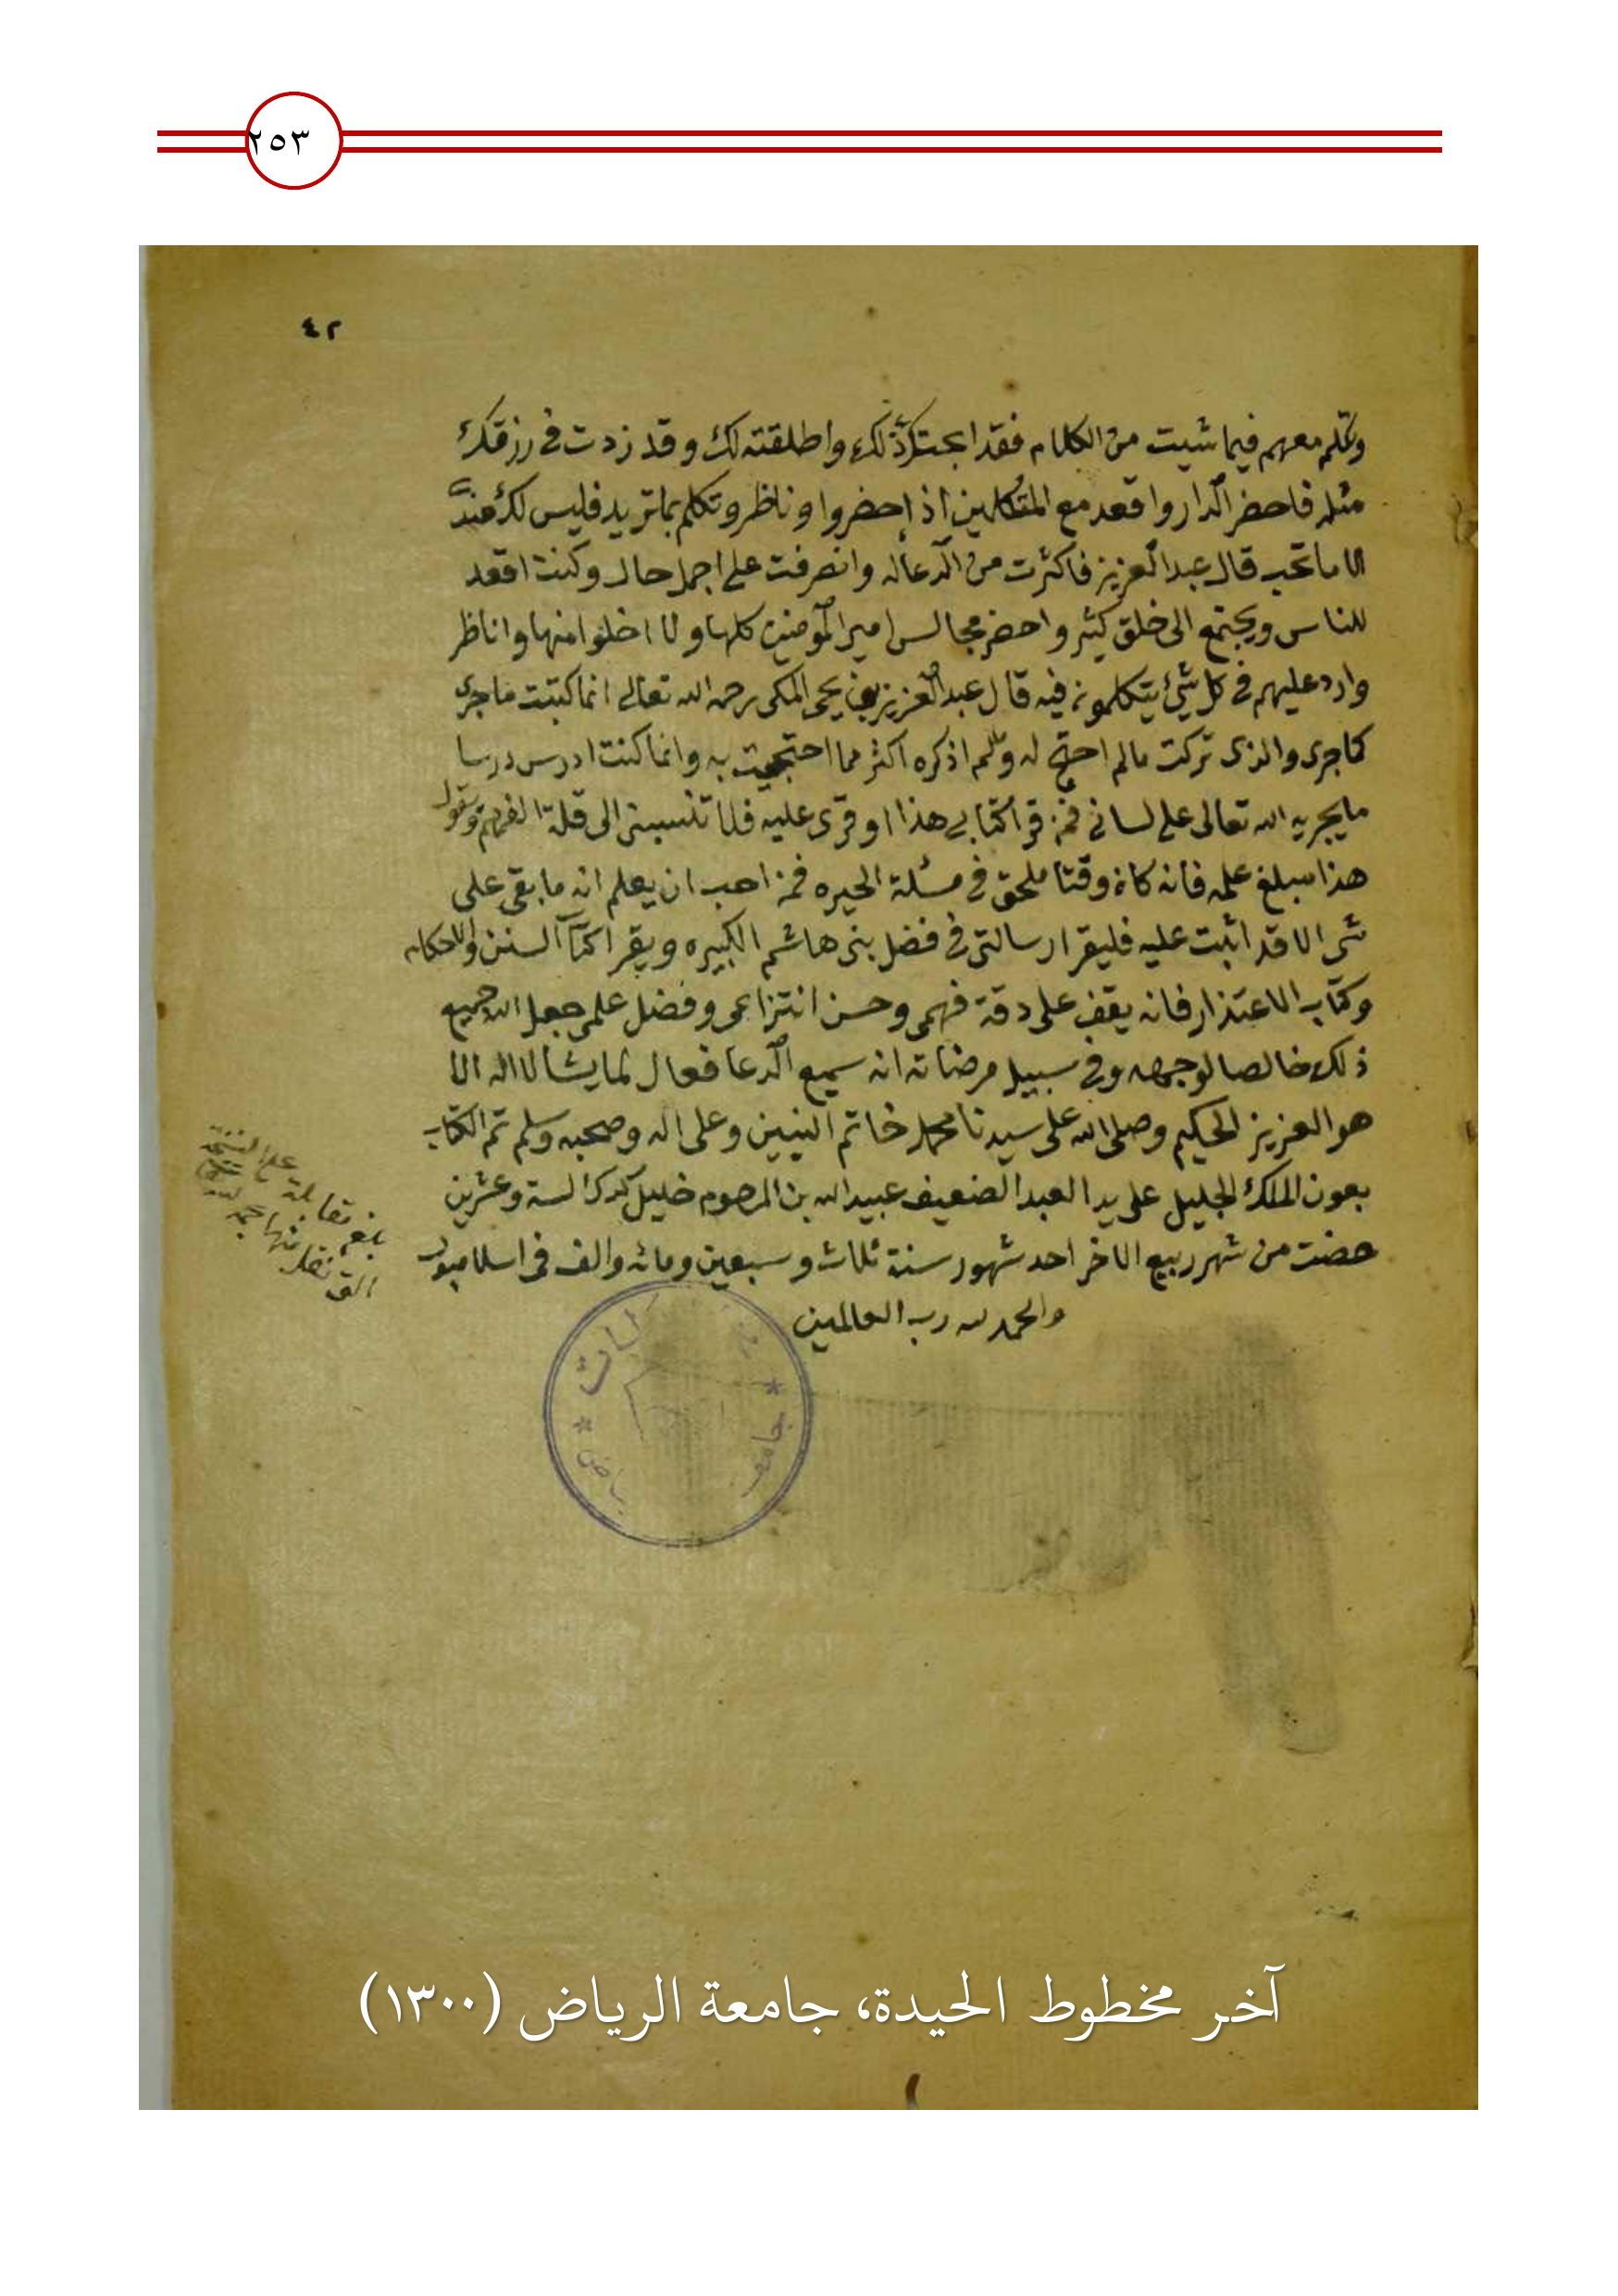 ٢٥٣
٤٢
وتكلم معهم فيما شيت من الكلام فقد ابحتك ذلك واطلقته لك وقد زدت في رزقك
مثله فاحضر الدار واقعد مع المتكلمين اذا حضروا وناظر وتكلم بما تريد فليس لك عندي
الا ما تحب قال عبد العزيز فاكثرت من الدعا له وانصرفت على اجمل حال وكنت اقعد
للناس ويجتمع الى خلق كثير واحضر مجالس امير المؤمنين كلها ولا اخلوا منها واناظر
وارد عليهم في كل شئ يتكلمون فيه قال عبد العزيز بن يحيى المكى رحمه الله تعالى انما كتبت ما جرى
كما جرى والذى تركت مالم احتج له ولم اذكره اكثر مما احتججت به وانما كنت ادرس درسا
ما يجريه الله تعالى على لسانى فمن قرا كتابي هذا او قرى عليه فلا تنسبنى الى قلة الفهم ويقول
هذا مبلغ علمه فانه كان وقتا ملحق في مسئلة الحيره فمن احب ان يعلم انه ما بقى على
شى الا قد اثبت عليه فليقرا رسالتى فى فضل بنى هاشم الكبيره ويقرا كتاب السنن والاحكام
وكتاب الاعتذار فانه يقف على دقة فهمى وحسن انتزاعى وفضل علمى جعل الله جميع
ذلك خالصا لوجهه وفى سبيل مرضاته انه سميع الدعا فعال لما يشا لا اله الا
هو العزيز الحكيم وصلى الله على سيدنا محمد خاتم النبيين وعلى اله وصحبه وسلم تم الكتاب
بعون الملك الجليل على يد العبد الضعيف عبيد الله بن المرحوم خليل لستة وعشرين
مضت من شهر ربيع الاخر احد شهور سنة ثلاث وسبعين ومائه والف فى اسلامبول
والحمد لله رب العالمين
بلغ مقابلة على النسخة
التى نقل منها
جامعة
آخر مخطوط الحيدة، جامعة الرياض (١٣٠٠)